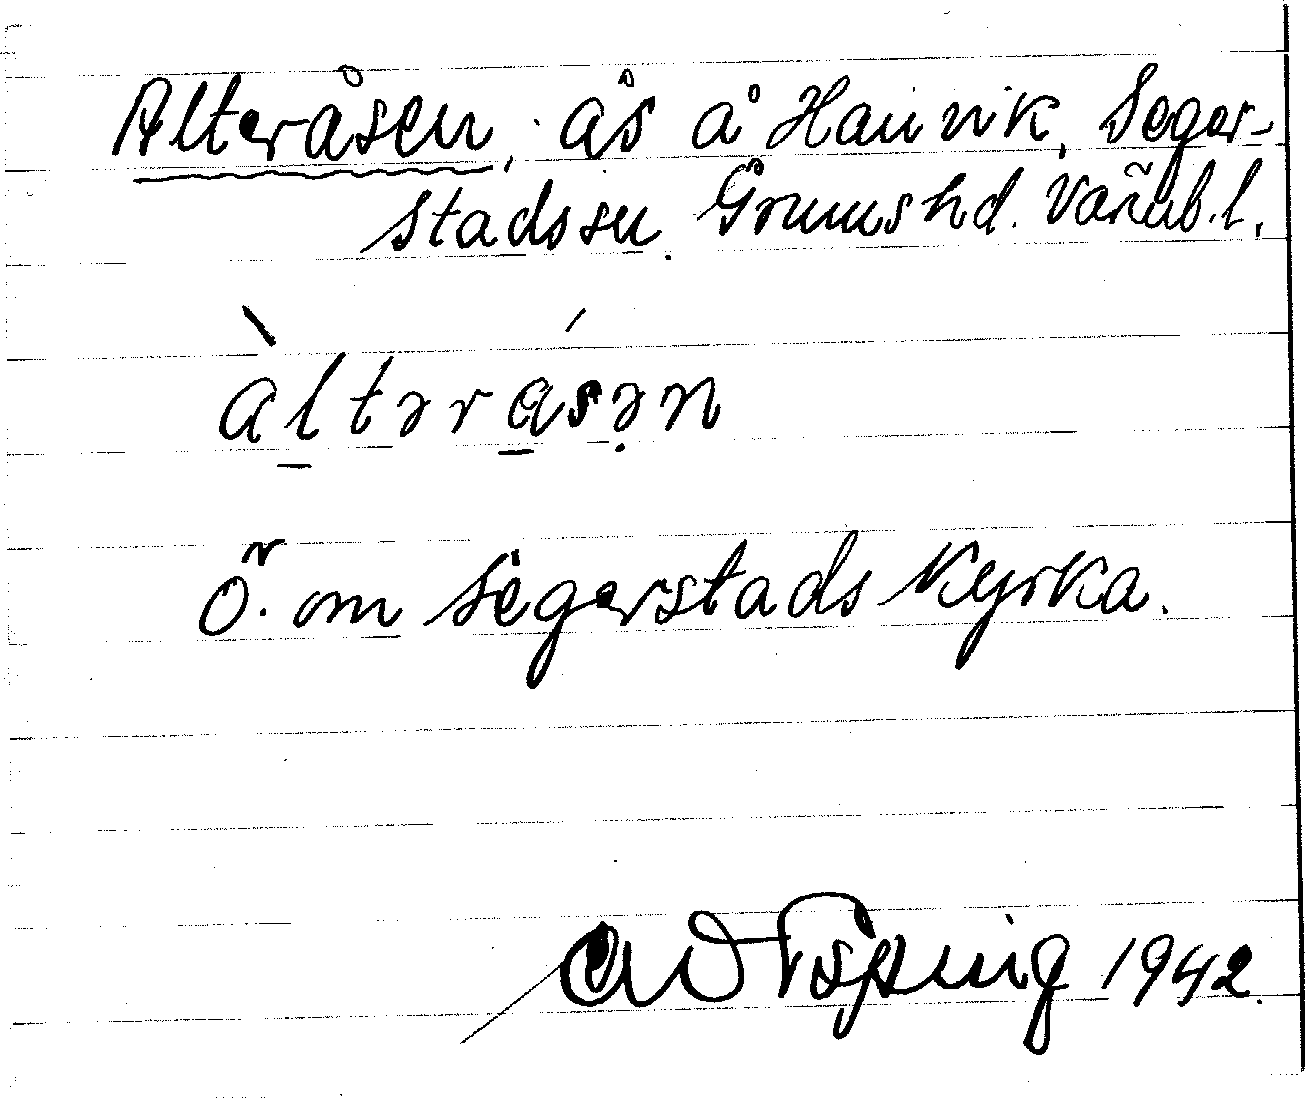 Alteråsen, ås å Hannvik, Seger-
stads sn. Grums hd. Värmb. l.
àltərásən
Ö. om Segerstads Kyrka.
1942.